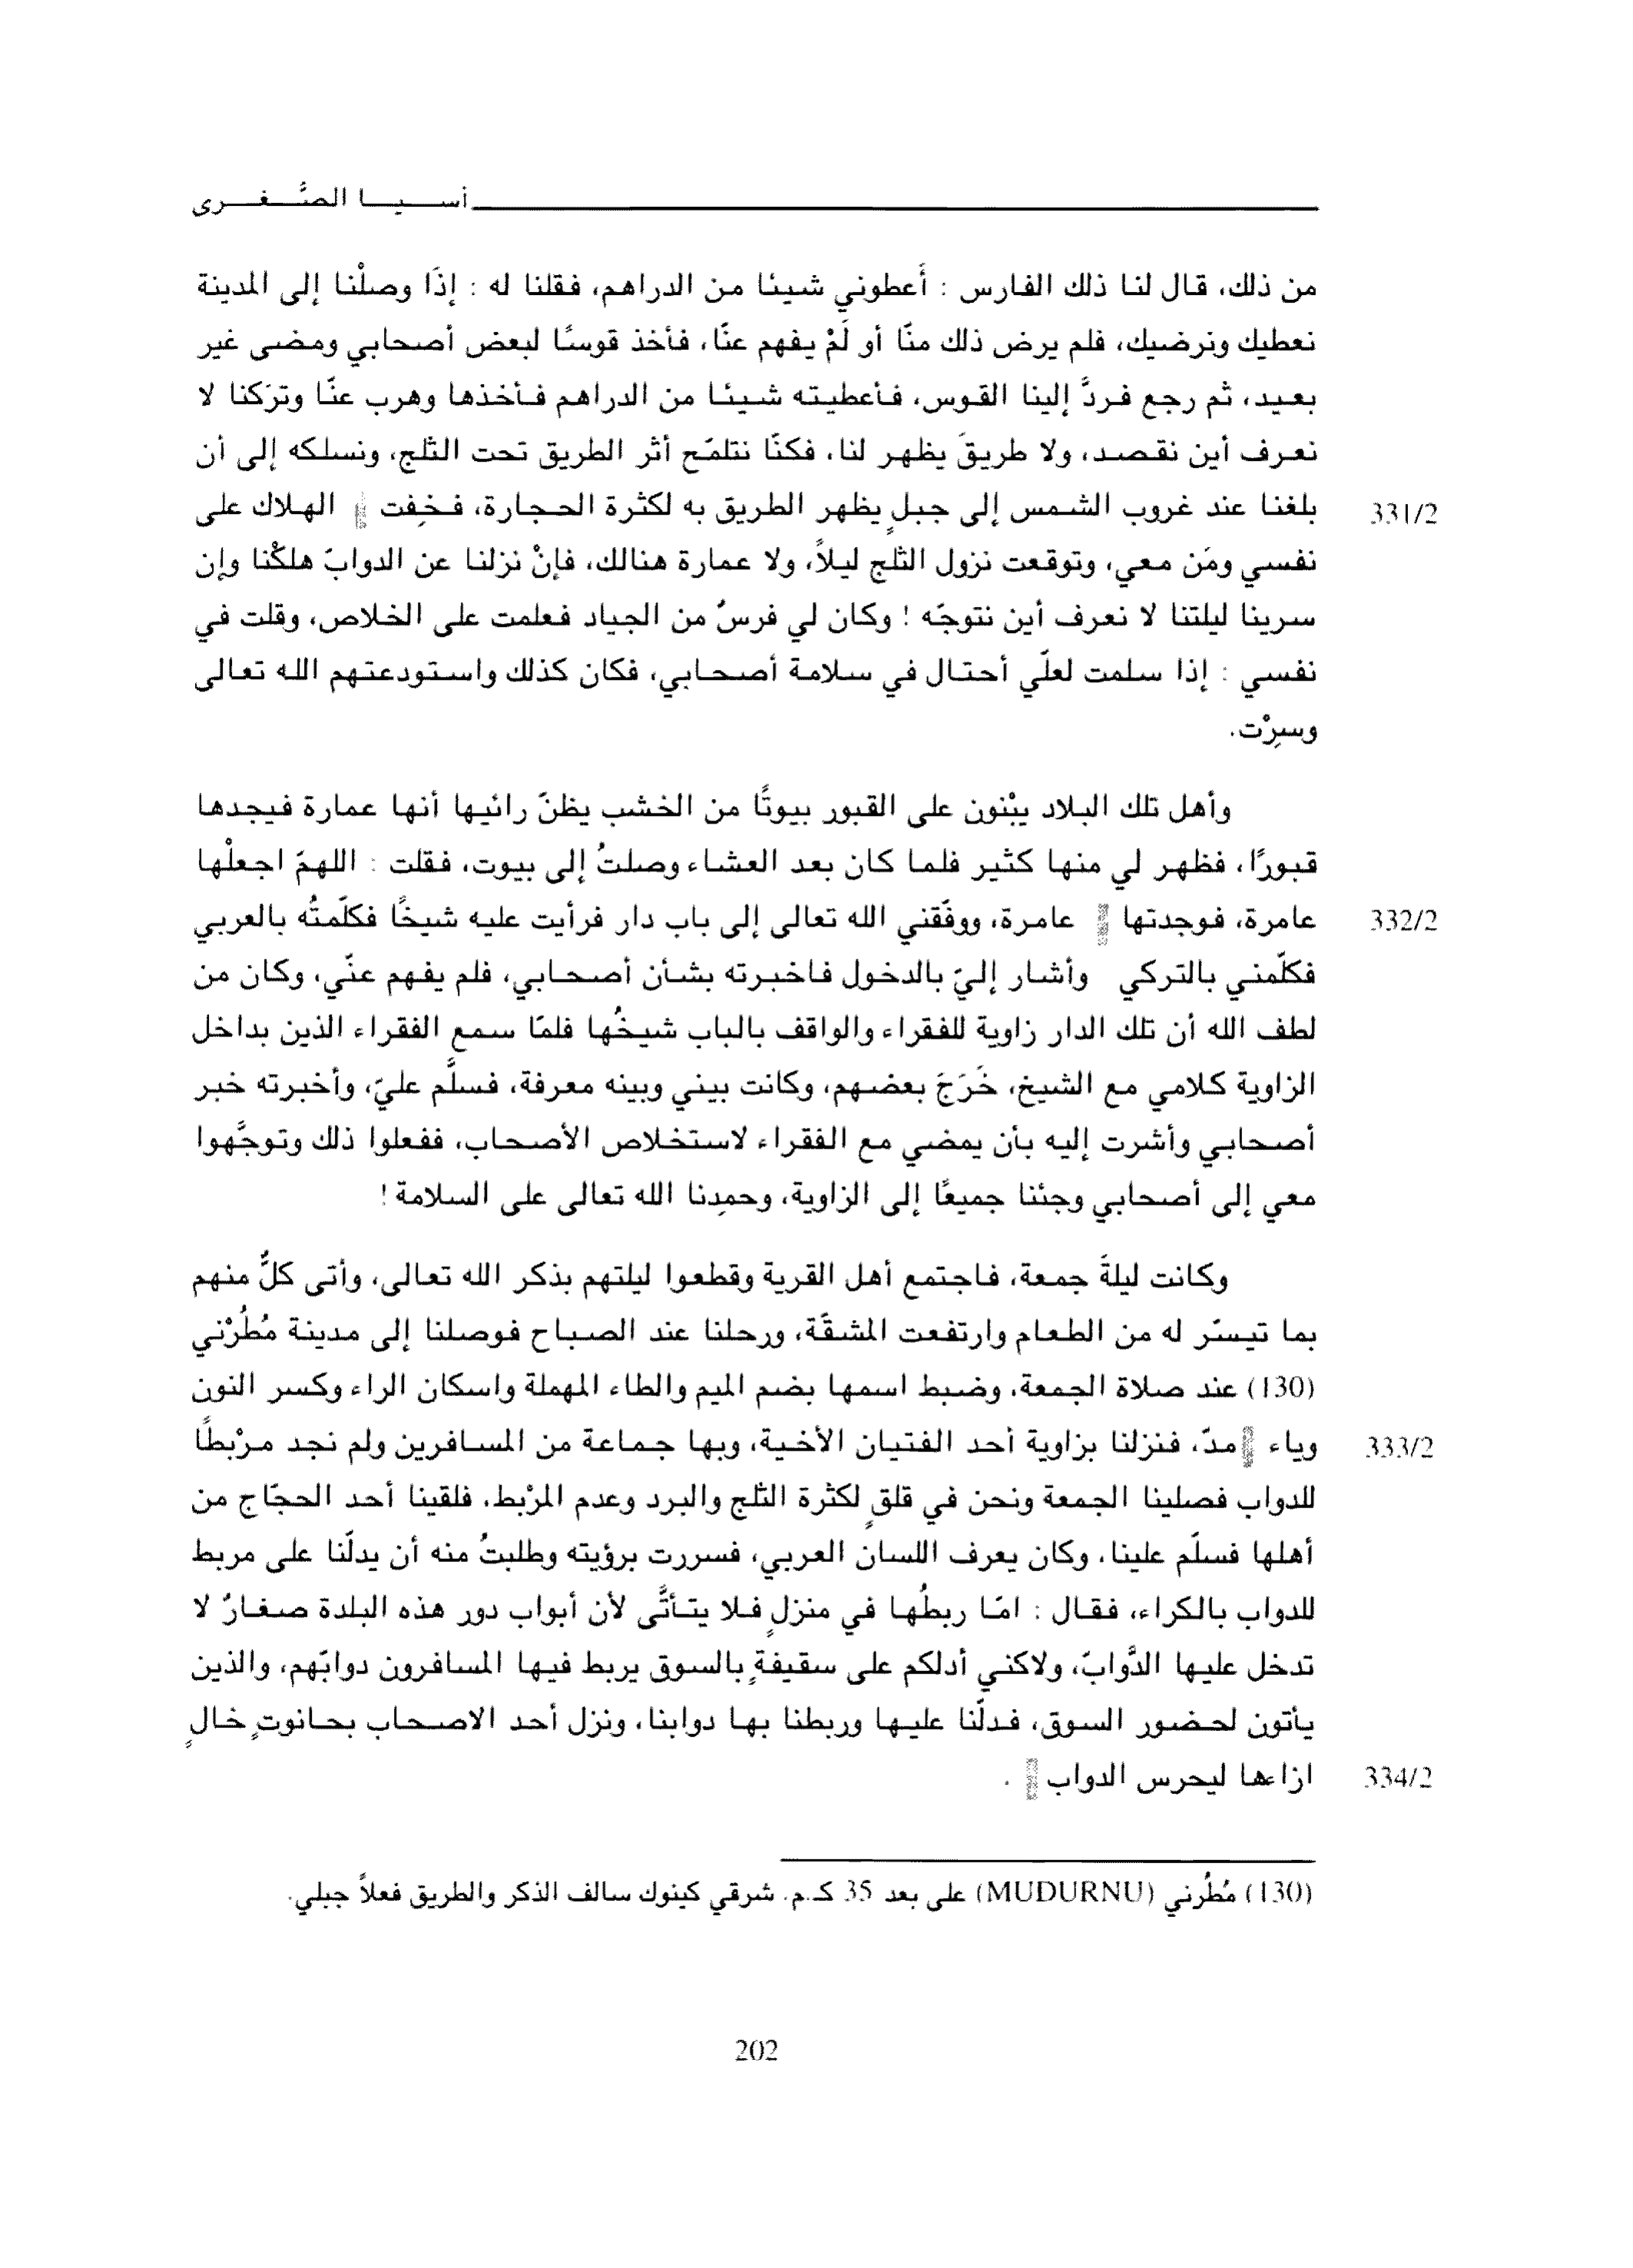 أسـيـا الصُّـغـرى
من ذلك، قال لنا ذلك الفارس : أَعطوني شيئا من الدراهم، فقلنا له : إذَا وصلْنا إلى المدينة
نعطيك ونرضيك، فلم يرض ذلك منّا أو لَمْ يفهم عنّا، فأخذ قوسًا لبعض أصحابي ومضى غير
بعيد، ثم رجع فردَّ إلينا القوس، فأعطيته شيئا من الدراهم فأخذها وهرب عنّا وتَركنا لا
نعرف أين نقصد، ولا طريقَ يظهر لنا، فكنّا نتلمّح أثر الطريق تحت الثلج، ونسلكه إلى أن
331/2 بلغنا عند غروب الشمس إلى جبلٍ يظهر الطريق به لكثرة الحجارة، فخِفت الهلاك على
نفسي ومَن معي، وتوقعت نزول الثلج ليلاً، ولا عمارة هنالك، فإنْ نزلنا عن الدوابّ هلكْنا وإن
سرينا ليلتنا لا نعرف أين نتوجّه ! وكان لي فرسٌ من الجياد فعلمت على الخلاص، وقلت في
نفسي : إذا سلمت لعلّي أحتال في سلامة أصحابي، فكان كذلك واستودعتهم الله تعالى
وسِرْت.
وأهل تلك البلاد يبْنون على القبور بيوتًا من الخشب يظنّ رائيها أنها عمارة فيجدها
قبورًا، فظهر لي منها كثير فلما كان بعد العشاء وصلتُ إلى بيوت، فقلت : اللهمّ اجعلْها
332/2 عامرة، فوجدتها عامرة، ووفّقني الله تعالى إلى باب دار فرأيت عليه شيخًا فكلّمتُه بالعربي
فكلّمني بالتركي وأشار إليّ بالدخول فاخبرته بشأن أصحابي، فلم يفهم عنّي، وكان من
لطف الله أن تلك الدار زاوية للفقراء والواقف بالباب شيخُها فلمّا سمع الفقراء الذين بداخل
الزاوية كلامي مع الشيخ، خَرَجَ بعضهم، وكانت بيني وبينه معرفة، فسلَّم عليّ، وأخبرته خبر
أصحابي وأشرت إليه بأن يمضي مع الفقراء لاستخلاص الأصحاب، ففعلوا ذلك وتوجَّهوا
معي إلى أصحابي وجئنا جميعًا إلى الزاوية، وحمِدنا الله تعالى على السلامة !
وكانت ليلةَ جمعة، فاجتمع أهل القرية وقطعوا ليلتهم بذكر الله تعالى، وأتى كلٌّ منهم
بما تيسّر له من الطعام وارتفعت المشقّة، ورحلنا عند الصباح فوصلنا إلى مدينة مُطُرْني
(130) عند صلاة الجمعة، وضبط اسمها بضم الميم والطاء المهملة واسكان الراء وكسر النون
333/2 وياء مدّ، فنزلنا بزاوية أحد الفتيان الأخية، وبها جماعة من المسافرين ولم نجد مرْبطًا
للدواب فصلينا الجمعة ونحن في قلقٍ لكثرة الثلج والبرد وعدم المرْبط، فلقينا أحد الحجّاج من
أهلها فسلّم علينا، وكان يعرف اللسان العربي، فسررت برؤيته وطلبتُ منه أن يدلّنا على مربط
للدواب بالكراء، فقال : امّا ربطُها في منزلٍ فلا يتأتَّى لأن أبواب دور هذه البلدة صغارٌ لا
تدخل عليها الدَّوابّ، ولاكني أدلكم على سقيفةٍ بالسوق يربط فيها المسافرون دوابّهم، والذين
يأتون لحضور السوق، فدلّنا عليها وربطنا بها دوابنا، ونزل أحد الاصحاب بحانوتٍ خالٍ
334/2 ازاءها ليحرس الدواب .
(130) مُطُرني (MUDURNU) على بعد 35 كـ.م. شرقي كينوك سالف الذكر والطريق فعلاً جبلي.
202